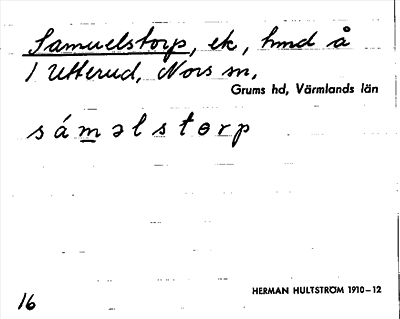 Samuelstorp, ek, hmd å
1 Utterud, Nors sn,
Grums hd, Värmlands län
sáməlstɵrp
HERMAN HULTSTRÖM 1910–12
16